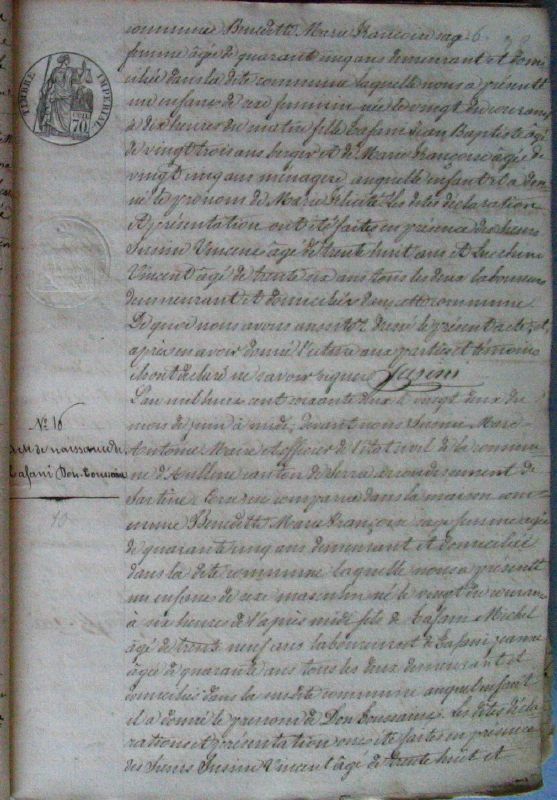 commune Benedetti Marie Françoise sage 6
femme âgé de quarant cinq ans demeurant et domi
ciliée dans la dite commune laquelle nous a présenté
un enfant de sexe feminin née le vingt du courant
à dix heures du matin fille Lafani Jean Baptiste âgé
de vingt trois ans berger et de Marie Françoise âgée de
vingt cinq ans ménagere auquelle enfant il a don
né le prenom de Marie Felicité les dites déclaration
et présentation ont été faites en présence des sieurs
Susini Vincent âgé de trente huit ans et Lucchini
Vincent âgé de trente six ans tous les deux laboureurs
demeurant et domiciliés dans cette commune
De quoi nous avons dressé le présent acte et
après en avoir donné lecture aux parties et temoins
ils ont declaré ne savoir signer Susini
L'an mil huit cent soixante deux le vingt deux du
mois de juin à midi, devant nous Susini Marc
Antoine Maire et officier de l'état civil de la commu
ne d'Aullene canton de Serra arrondissement de
Sartène Corse est comparue dans la maison com
mune Benedetti Marie Françoise sage femme agée
de quarante cinq ans demeurant et domiciliée
dans la dite commune laquelle nous a présenté
un enfant de sexe masculin né le vingt du courant
à six heures de l'après midi fils de Lafani Michel
âgé de trente neuf ans laboureur et de Lafani Jeanne
âgée de quarante ans tous les deux demeurant et
domiciliés dans la susdite commune auquel enfant
il a donné le prenom de Don Toussaint. Les dites décla
rations et présentation ont été faites en présence
des sieurs Susini Vincent âgé de trente huit et
TIMBRE IMPERIAL
70
N° 10
acte de naissance de
Lafani Don Toussain
10